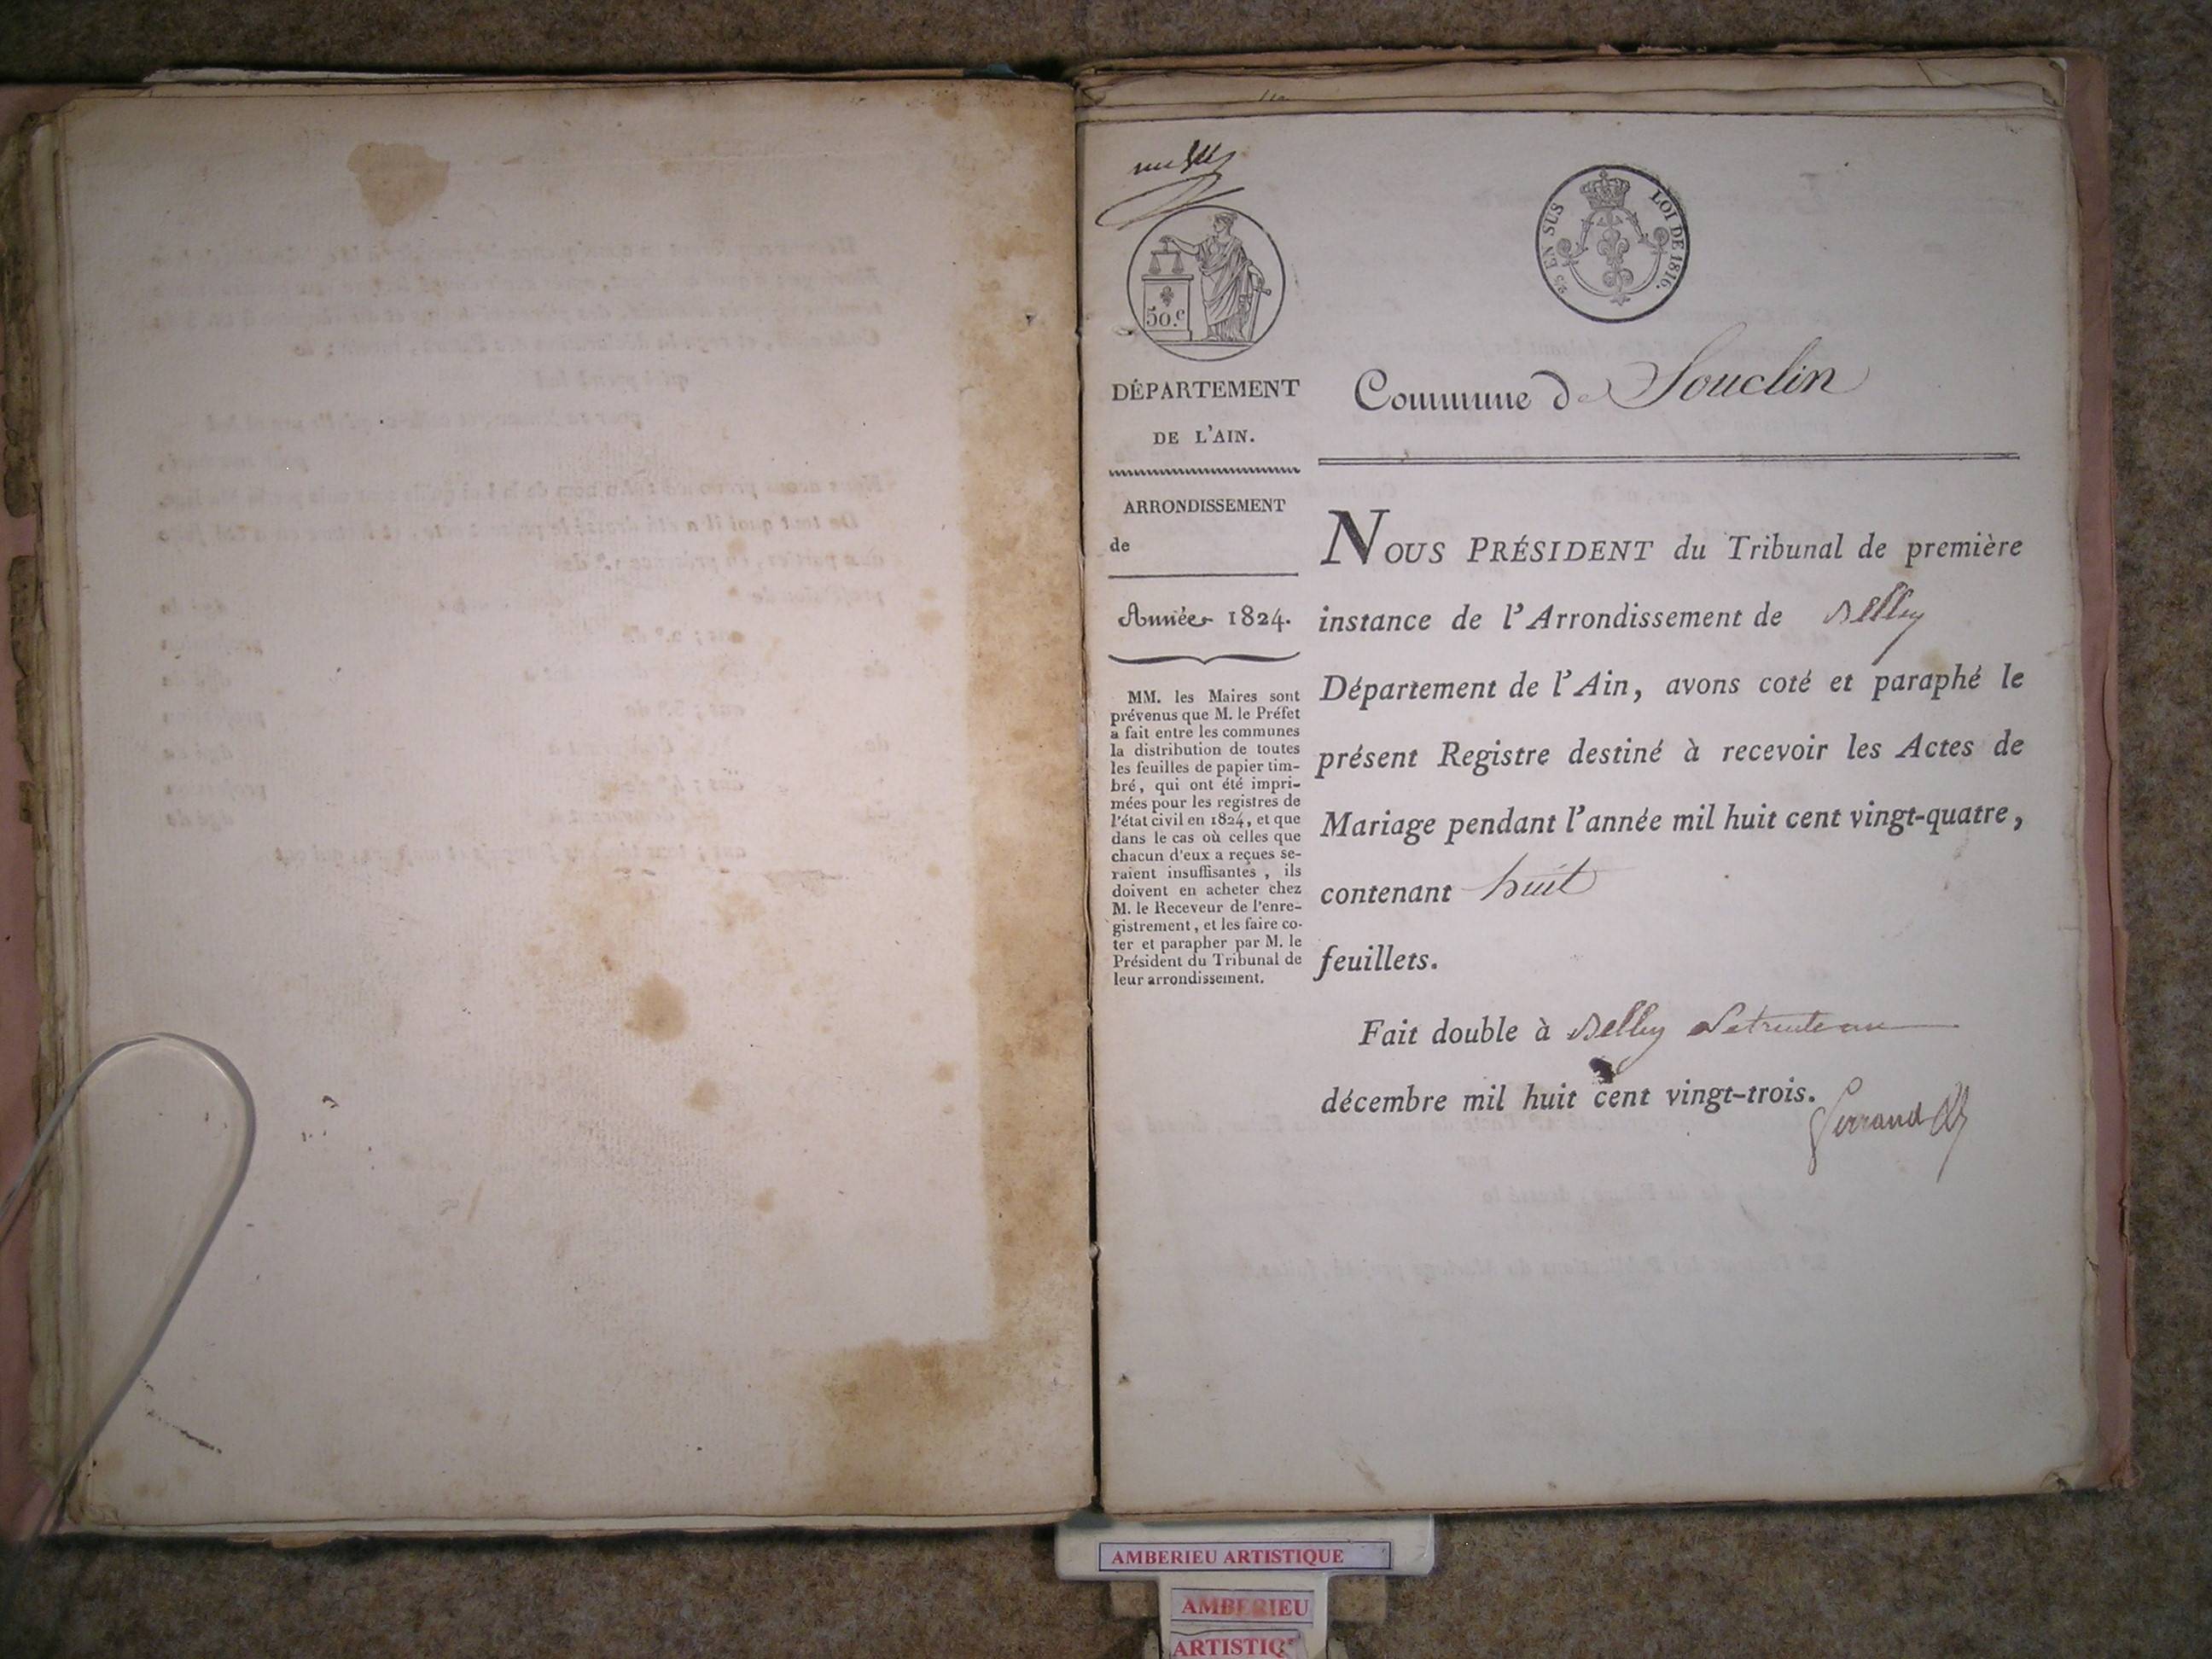 50.c
2/10 EN SUS LOI DE 1816.
DÉPARTEMENT
DE L'AIN.
ARRONDISSEMENT
de
Année 1824.
MM. les Maires sont
prévenus que M. le Préfet
a fait entre les communes
la distribution de toutes
les feuilles de papier tim-
bré, qui ont été impri-
mées pour les registres de
l'état civil en 1824, et que
dans le cas où celles que
chacun d'eux a reçues se-
raient insuffisantes, ils
doivent en acheter chez
M. le Receveur de l'enre-
gistrement, et les faire co-
ter et parapher par M. le
Président du Tribunal de
leur arrondissement.
Commune de Souclin
NOUS PRÉSIDENT du Tribunal de première
instance de l'Arrondissement de Belley
Département de l'Ain, avons coté et paraphé le
présent Registre destiné à recevoir les Actes de
Mariage pendant l'année mil huit cent vingt-quatre,
contenant huit
feuillets.
Fait double à Belley le trente un
décembre mil huit cent vingt-trois.
AMBERIEU ARTISTIQUE
AMBERIEU
ARTISTIQ